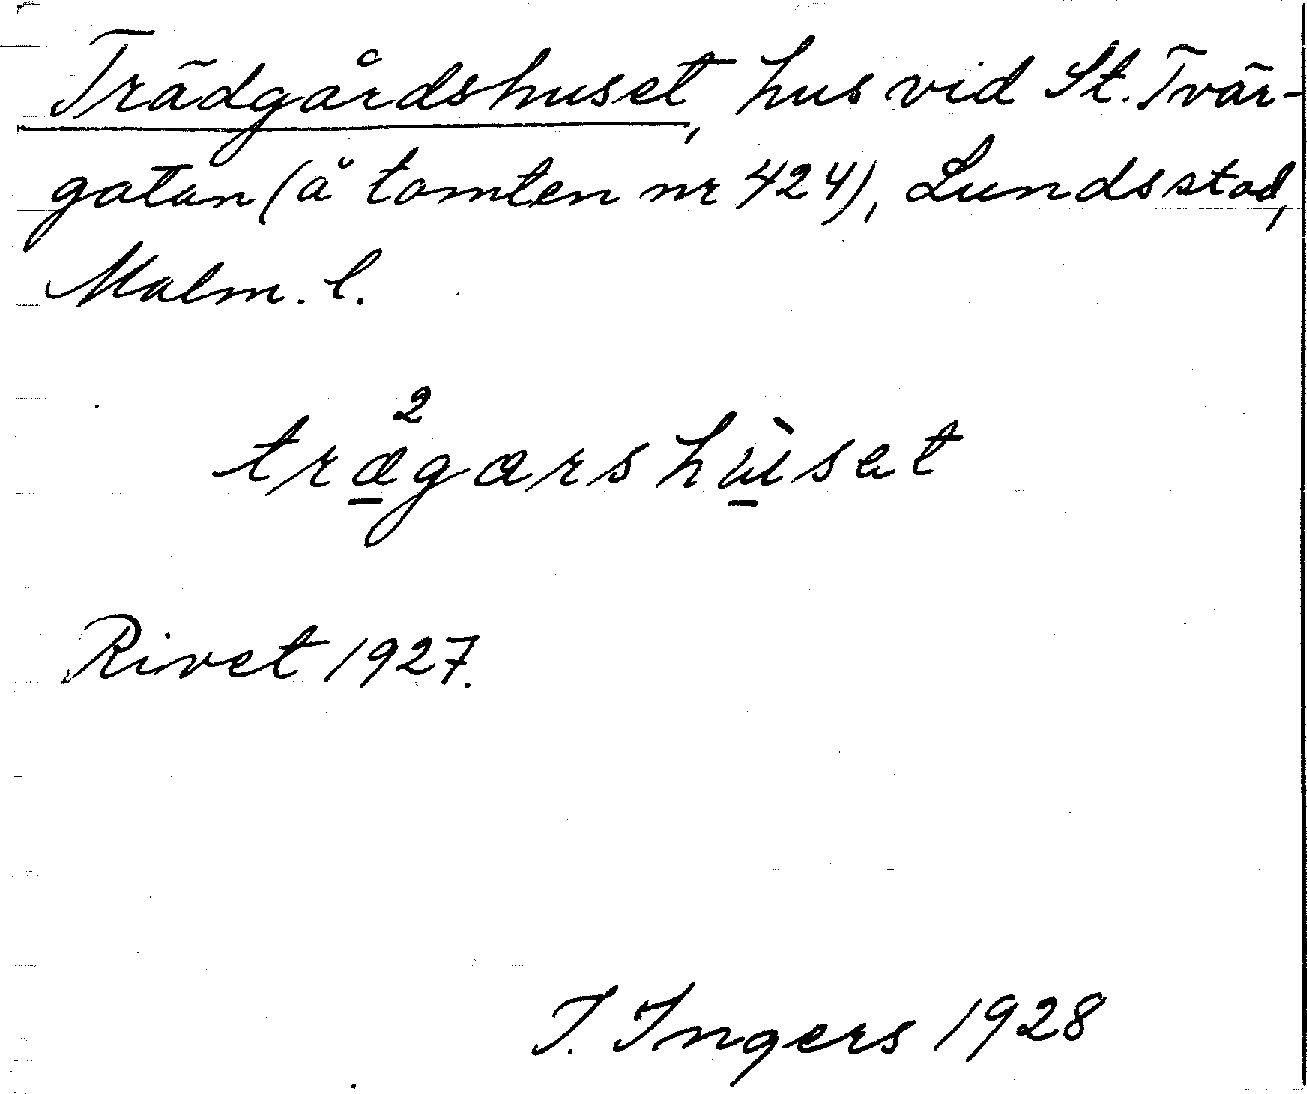 Trädgårdshuset, hus vid St. Tvär-
gatan (å tomten nr 424), Lunds stad,
Malm. l.
2
trægarshùset
Rivet 1927.
I. Ingers 1928